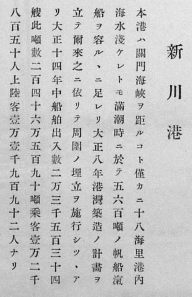 新川港
本港ハ關門海峽ヲ距ルコト僅カニ十八海里港內
海水淺ケレトモ滿潮時ニ於テ五六百噸ノ帆船氣
船ヲ容ルヽニ足レリ大正八年港灣築造ノ計畫ヲ
立テ爾來之ニ依リテ周圍ノ埋立ヲ施行シツヽア
リ大正十四年中船舶出入數二万三千五百三十四
艘此噸數二百四十六万五百九十噸乘客壹万二千
八百五十人上陸客壹万壹千九百九十二人ナリ